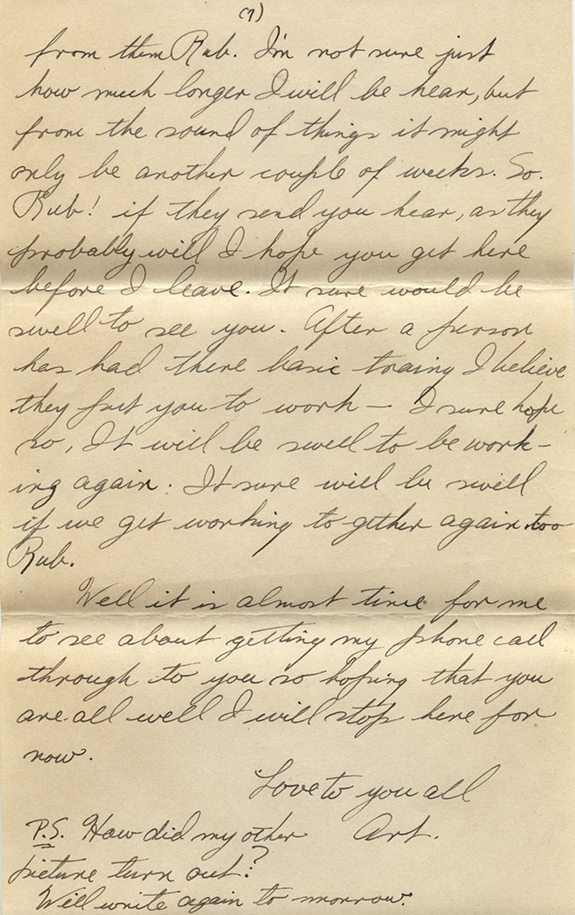 (7)
from them Rub. I'm not sure just
how much longer I will be hear, but
from the sound of things it might
only be another couple of weeks. So.
Rub! if they send you hear, as they
probably will I hope you get here
before I leave. It sure would be
swell to see you. After a person
has had there basic traing I believe
they put you to work — I sure hope
so, It will be swell to be work-
ing again. It sure will be swell
if we get working to gether again too
Rub.
Well it is almost time for me
to see about getting my phone call
through to you so hoping that you
are all well I will stop here for
now.
Love to you all
Art.
P.S. How did my other
picture turn out?
Will write again to morrow.